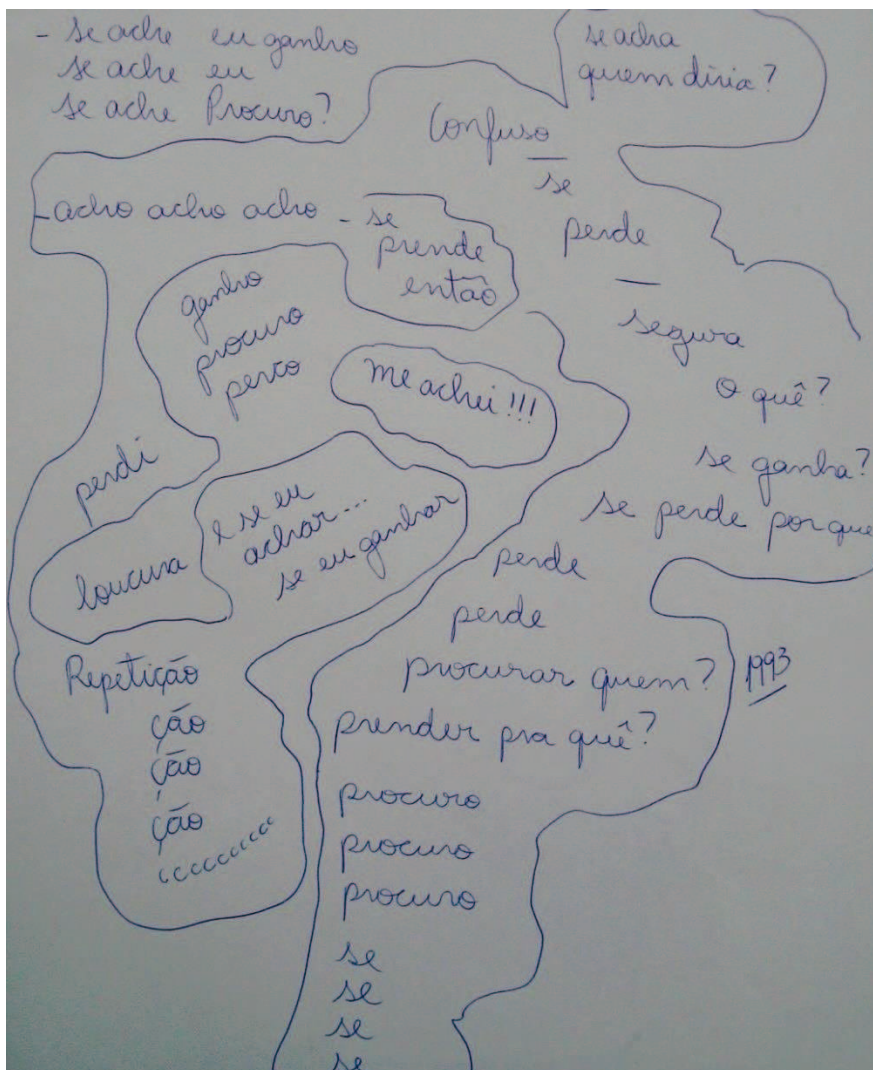 - se ache eu ganho
se ache eu
se ache Procuro?
se acha
quem diria?
Confuso
se
perde
segura
o quê?
se ganha?
se perde porque
- acho acho acho -
se
prende
então
ganho
procuro
perco
me achei!!!
perdi
loucura
e se eu
achar...
se eu ganhar
Repetição
ção
ção
ção
ccccccccc
perde
perde
procurar quem?
prender pra quê?
procuro
procuro
procuro
se
se
se
se
1993